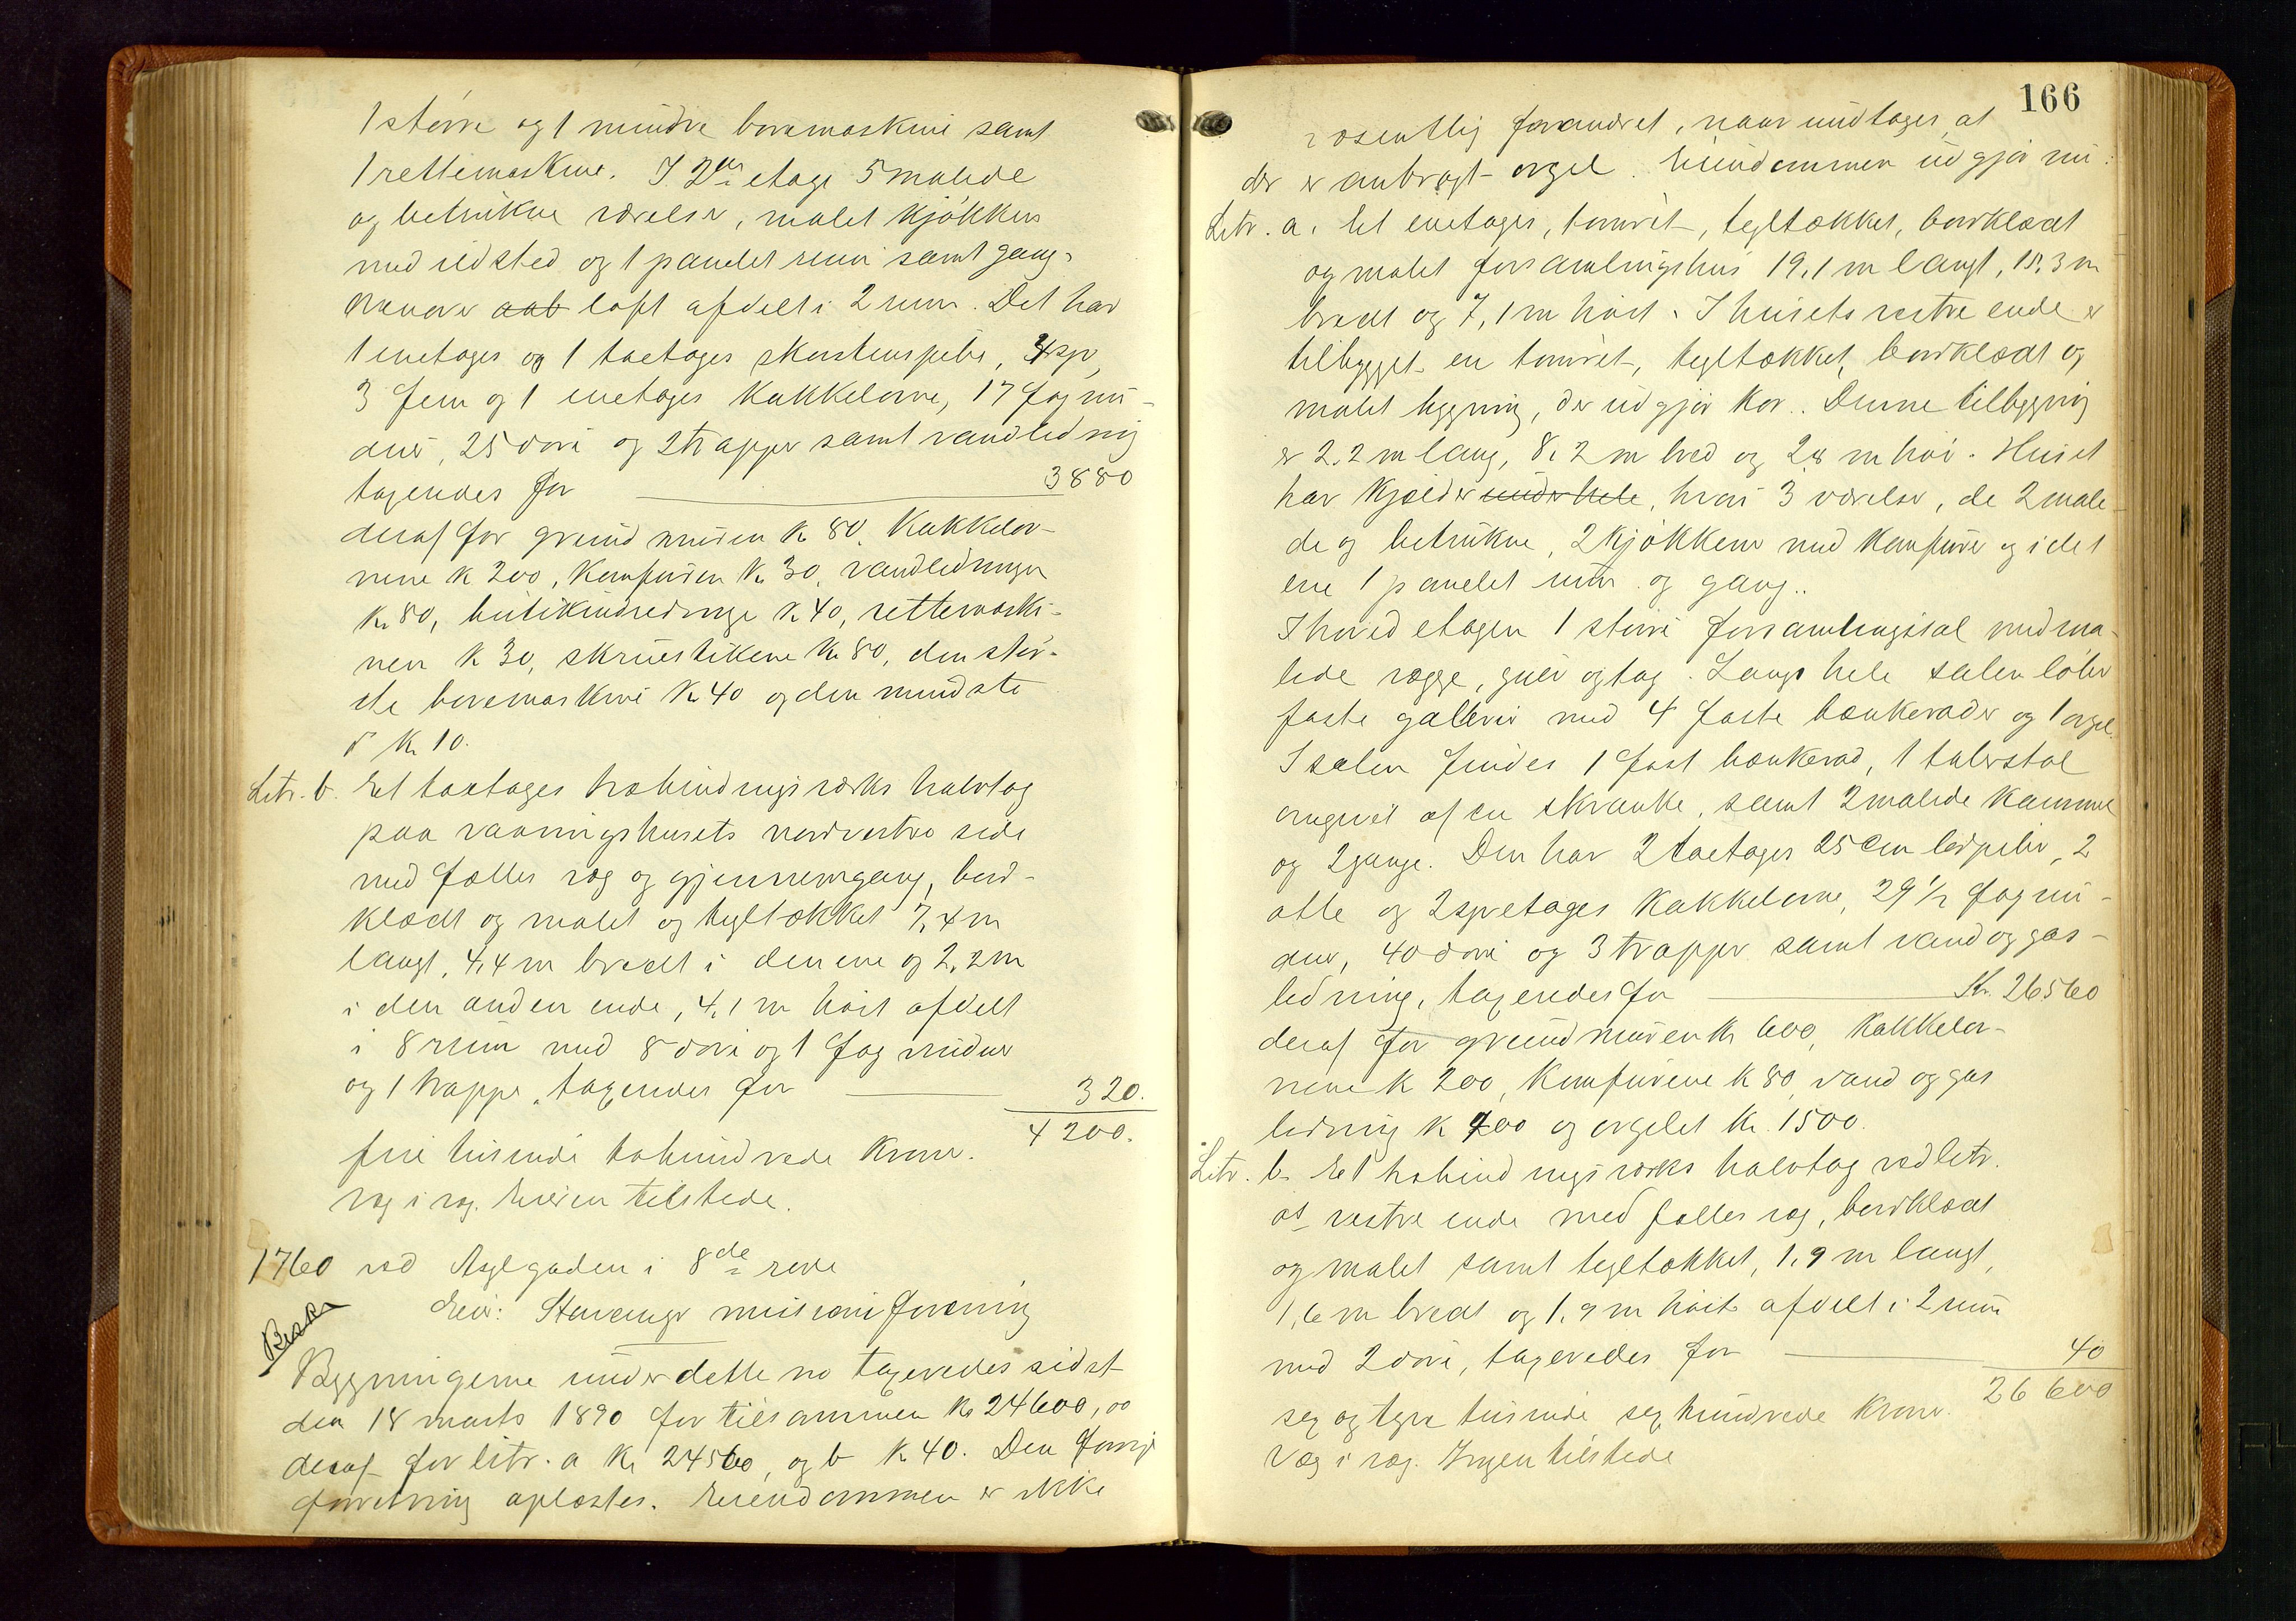 1 større og 1 mindre boremaskine samt
1 rettemaskine. I 2den etage 5 malede
og betrukne værelser, malet kjøkken
med ildsted og 1 panelet rum samt gang.
Ovenover aab loft afdelt i 2 rum. Det har
1 enetages og 1 toetages skorstenspibe, 4 syv,
3 fem og 1 enetages kakkelovne, 17 fag vin-
duer, 25 døre og 2 trapper samt vandledning
taxeredes for 3880
deraf for grundmuren kr 80, kakkelov-
nene k 200, komfuren kr 30, vandledningen
kr 80, butikindredninge k 40, rettemaski-
nen k 30, skruestikkene kr 80, den stør-
ste boremaskine kr 40 og den mindste
kr 10.
Litr. b. Et toetages udbindingsværks halvtag
paa vaaningshusets nordvestre side
med fælles væg og gjennemgang, bord-
klædt og malet og tegltækket 7,4 m
langt, 4,4 m bredt i den ene og 2,2 m
i den anden ende, 4,1 m høit afdelt
i 8 rum med 8 døre og 1 fag vinduer
og 1 trappe, taxeredes for 320.
4200.
fire tusinde tohundrede kroner.
Væg i væg. Eieren tilstede.
1760 ved Asylgaden i 8de rode
Eier: Stavanger missionsforening
Besk.
Bygningerne under dette no taxeredes sidst
den 18 marts 1890 for tilsammen kr 24600, oo
deraf for litr. a kr 24560, og b k 40. Den forrige
forretning oplæstes. Eiendommen er ikke
166
væsentlig forandret, naar undtages, at
der er anbragt orgel. Eiendommen udgjør nu:
Litr. a. Et enetages, tømret, tegltækket, bordklædt
og malet forsamlingshus 19,1 m langt, 15,3 m
bredt og 7,1 m høit. I husets vestre ende er
tilbygget en tømret, tegltækket, bordklædt og
malet bygning, der udgjør kor. Denne tilbygning
er 2,2 m lang, 8,2 m bred og 2,8 m høi. Huset
har kjælder under hele, hvori 3 værelser, de 2 male-
de og betrukne, 2 kjøkkener med komfure og i det
ene 1 panelet rum og gang.
I hovedetagen 1 større forsamlingssal med ma-
lede vægge, gulv og tag. Langs hele salen løber
faste galleri med 4 faste bænkerader og 1 orgel.
I salen findes 1 fast bænkerad, 1 talerstol
omgivet af en skranke, samt 2 malede kammer
og 2 gange. Den har 2 toetages 25 cm ledpiber, 2
otte og 2 syvetages kakkelovne, 29 ½ fag vin-
duer, 40 døre og 3 trapper samt vand og gas-
ledning, taxeredes for Kr. 26560
deraf for grundmuren kr 600, kakkelov-
nene k 200, komfurene k 80, vand og gas
ledning k 700 og orgelet kr. 1500.
Litr. b. Et udbindingsværks halvtag ved litr.
as vestre ende med fælles væg, bordklædt
og malet samt tegltækket, 1,9 m langt,
1,6 m bredt og 1,9 m høit afdelt i 2 rum
med 2 døre, taxeredes for 40
26600
sex og tyve tusinde sex hundrede kroner.
Væg i væg. Ingen tilstede